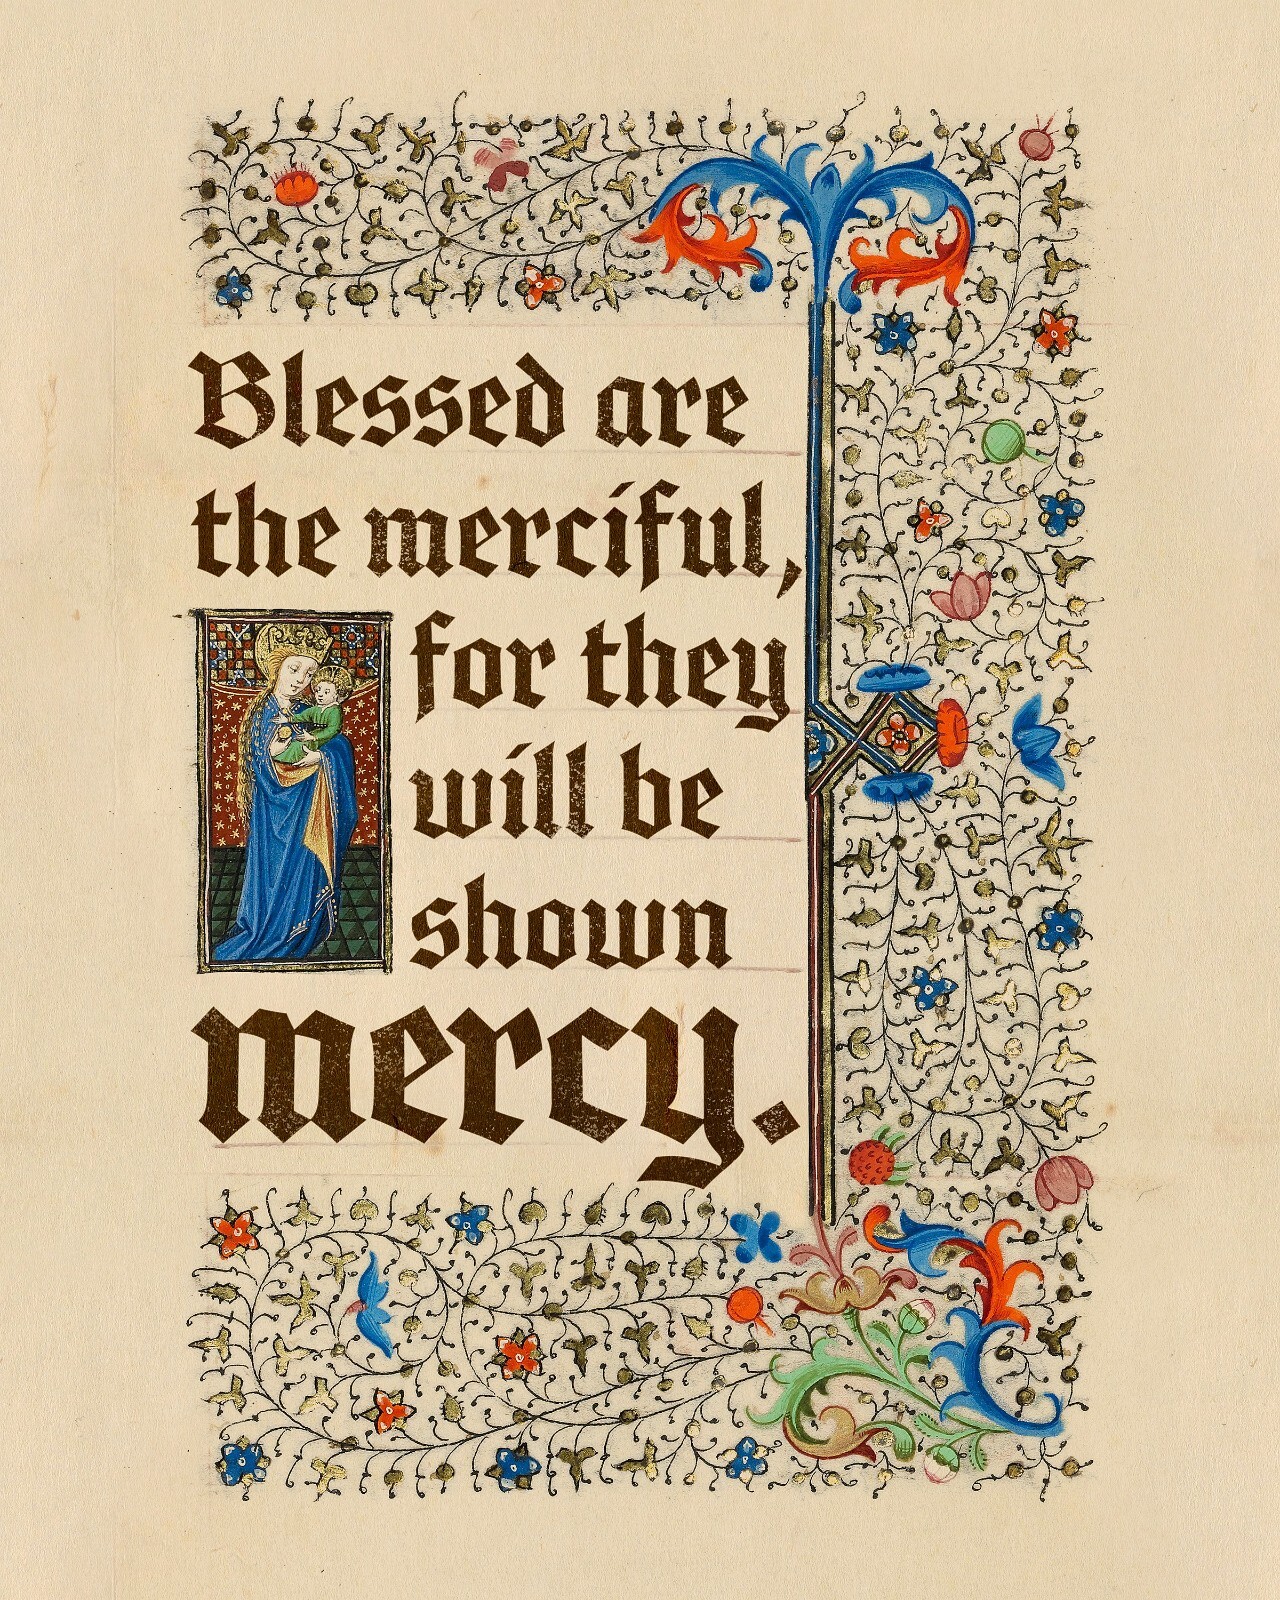 Blessed are
the merciful,
for they
will be
shown
mercy.